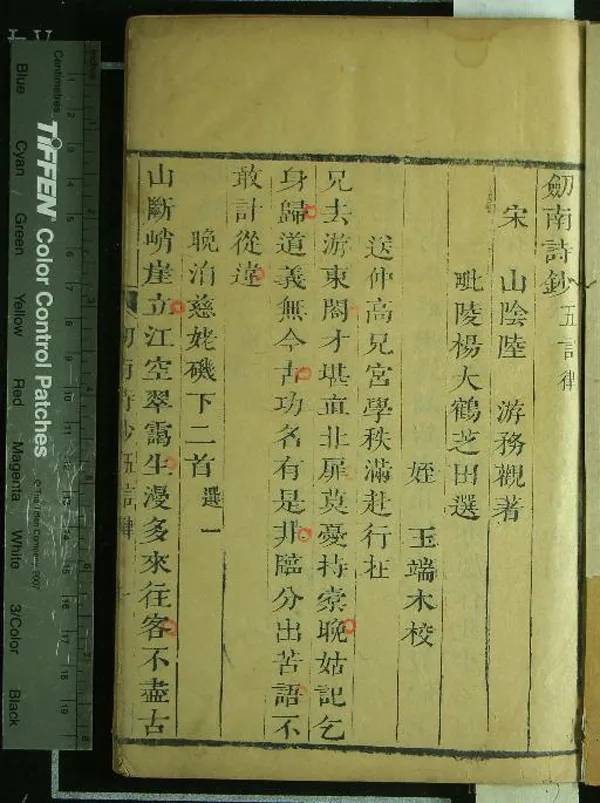 劒南詩鈔 五言律
宋 山陰陸 游務觀著
毗陵楊大鶴芝田選
姪 玉端木校
送仲高兄宮學秩滿赴行在
兄去游東閣才堪直北扉莫憂持槖晚姑記乞
身歸道義無今古功名有是非臨分出苦語不
敢計從違
晚泊慈姥磯下二首 選一
山斷峭崖立江空翠靄生漫多來往客不盡古
劒南詩鈔 五言律
Centimetres
Inches
TIFFEN Color Control Patches
© The Tiffen Company, 2007
Blue
Cyan
Green
Yellow
Red
Magenta
White
3/Color
Black